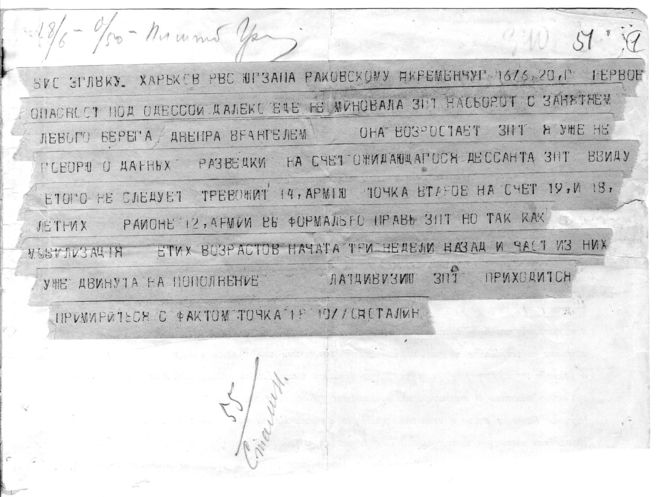 28/6 - 0/50 -
51
ВИС ЗГЛВКУ. ХАРЬКОВ РВС ЮГЗАПА РАКОВСКОМУ ИКРЕМЕНЧУГ 16/6, 20, Г ПЕРВОЕ
ОПАСНОСТ ПОД ОДЕССОЙ ДАЛЕКО ЕЩЕ НЕ МИНОВАЛА ЗПТ НАОБОРОТ С ЗАНЯТЯЕМ
ЛЕВОГО БЕРЕГА ДНЕПРА ВРАНГЕЛЕМ ОНА ВОЗРОСТАЕТ ЗПТ Я УЖЕ НЕ
ГОВОРЮ О ДАННЫХ РАЗВЕДКИ НА СЧЕТ ОЖИДАЮЩАГОСЯ ДЕССАНТА ЗПТ ВВИДУ
ЕТОГО НЕ СЛЕДУЕТ ТРЕВОЖИТ 14, АРМІЮ ТОЧКА ВТАРОЕ НА СЧЕТ 19, И 18,
ЛЕТНИХ РАЙОНЕ 12, АРМИИ ВЫ ФОРМАЛЬНО ПРАВЫ ЗПТ НО ТАК КАК
МОБИЛИЗАЦІЯ ЕТИХ ВОЗРАСТОВ НАЧАТА ТРИ НЕДЕЛИ НАЗАД И ЧАСТ ИЗ НИХ
УЖЕ ДВИНУТА НА ПОПОЛНЕНИЕ ЛАТДИВИЗИЮ ЗПТ ПРИХОДИТСЯ
ПРИМИРИТЬСЯ С ФАКТОМ ТОЧКА СТАЛИН
55
Сталин.